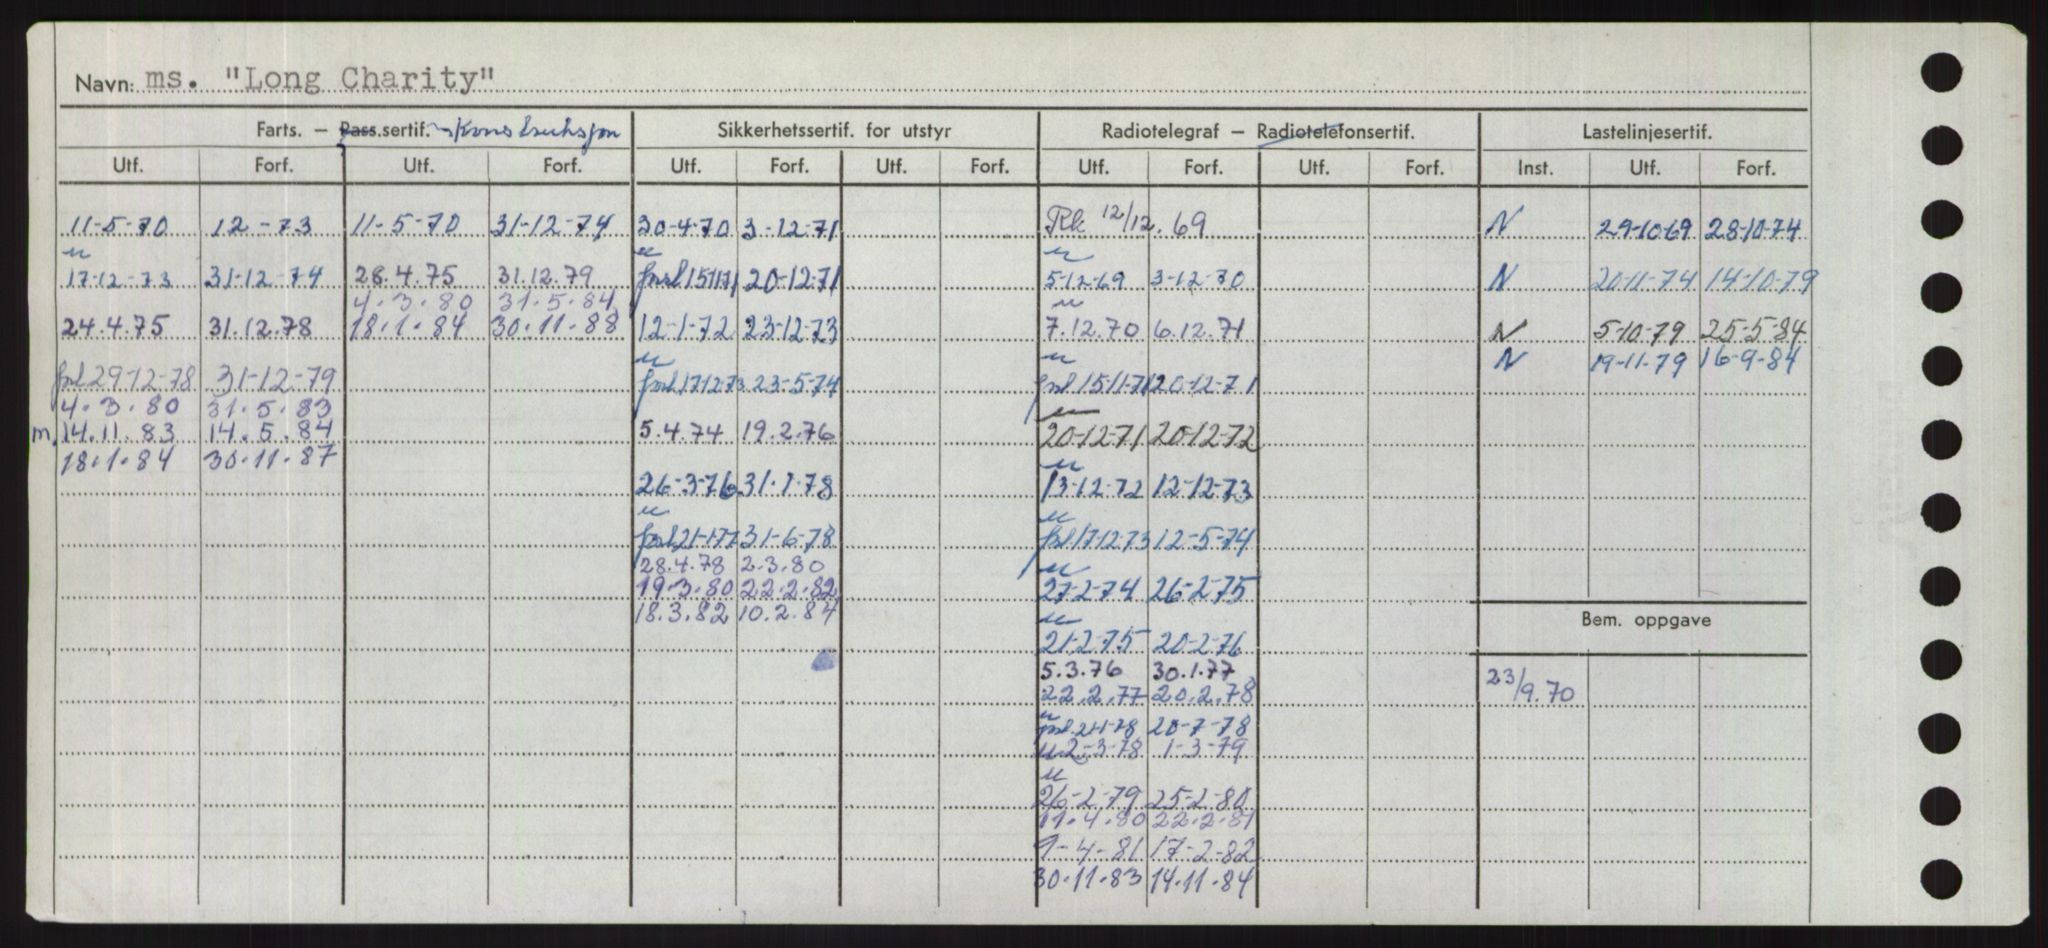 Navn: ms. "Long Charity"
Farts. – Pass.sertif. Konstruksjon Sikkerhetssertif. for utstyr Radiotelegraf – Radiotelefonsertif. Lastelinjesertif.
Utf. Forf. Utf. Forf. Utf. Forf. Utf. Forf. Utf. Forf. Utf. Forf. Inst. Utf. Forf.
11-5-70 12-73 11-5-70 31-12-74 30-4-70 3-12-71 Rk 12/12.69 N 29-10-69 28-10-74
u u u
17-12-73 31-12-74 28.4.75 31.12.79 forl 15/11 71 20-12-71 5-12-69 3-12-70 N 20-11-74 14-10-79
4.3.80 31.5.84 u
24.4.75 31.12.78 18.1.84 30.11.88 12-1-72 23-12-73 7.12.70 6.12.71 N 5-10-79 25-5-84
u u N 19-11-79 16-9-84
forl 29-12-78 31-12-79 forl 17-12-73 23-5-74 forl 15-11-71 20-12-71
4.3.80 31.5.83 u
m. 14.11.83 14.5.84 5.4.74 19.2.76 20-12-71 20-12-72
18.1.84 30.11.87 u
26-3-76 31-1-78 13-12-72 12-12-73
u u
forl 21-1-77 31-6-78 forl 17-12-73 12-5-74
28.4.78 2.3.80 u
19.3.80 22.2.82 27-2-74 26-2-75
18.3.82 10.2.84 u Bem. oppgave
21-2-75 20-2-76
5.3.76 30.1.77
22.2.77 20.2.78 23/9.70
u
forl 21-1-78 20-7-78
u 2-3-78 1-3-79
u
26-2-79 25-2-80
11.4.80 22.2.81
1-4-81 17-2-82
30.11.83 14.11.84